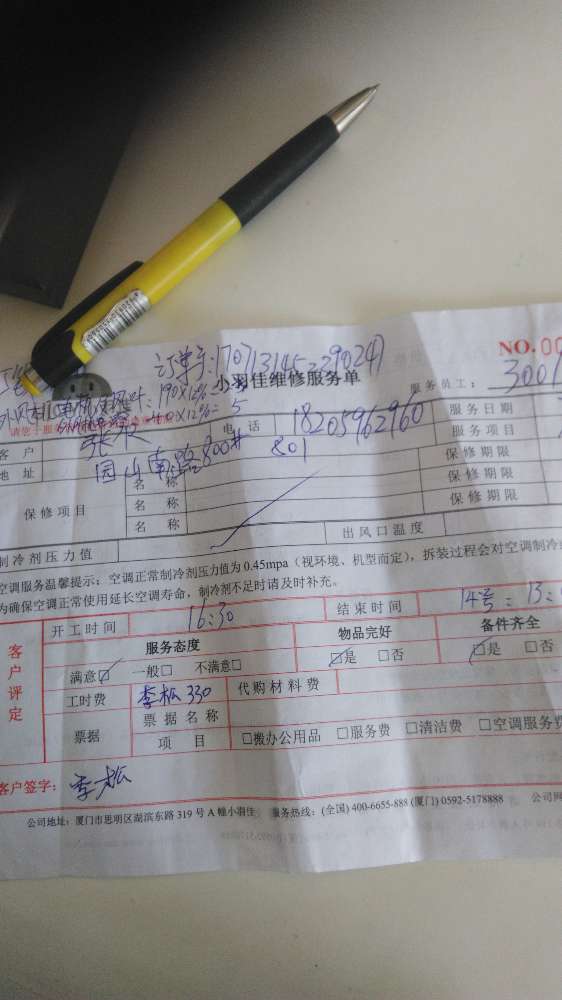 订单号:170713145290241
小羽佳维修服务单
NO.00
190X12%=
X12%= 5
服务员工: 3001
客户 张
电话 18205962960
服务日期
地址 园山南路800# 801
服务项目
保修项目
名称
保修期限
名称
保修期限
名称
保修期限
制冷剂压力值
出风口温度
空调服务温馨提示:空调正常制冷剂压力值为0.45mpa(视环境、机型而定),拆装过程会对空调制冷
为确保空调正常使用延长空调寿命,制冷剂不足时请及时补充。
客户评定
开工时间 16:30
结束时间 14号:13:
服务态度
物品完好
备件齐全
满意☑ 一般□ 不满意□
☑是 □否
☑是 □否
工时费 李松330
代购材料费
票据
票据名称
项目
□搬办公用品 □服务费 □清洁费 □空调服务费
客户签字: 李松
公司地址:厦门市思明区湖滨东路319号A幢小羽佳 服务热线:(全国) 400-6655-888 (厦门) 0592-5178888 公司网